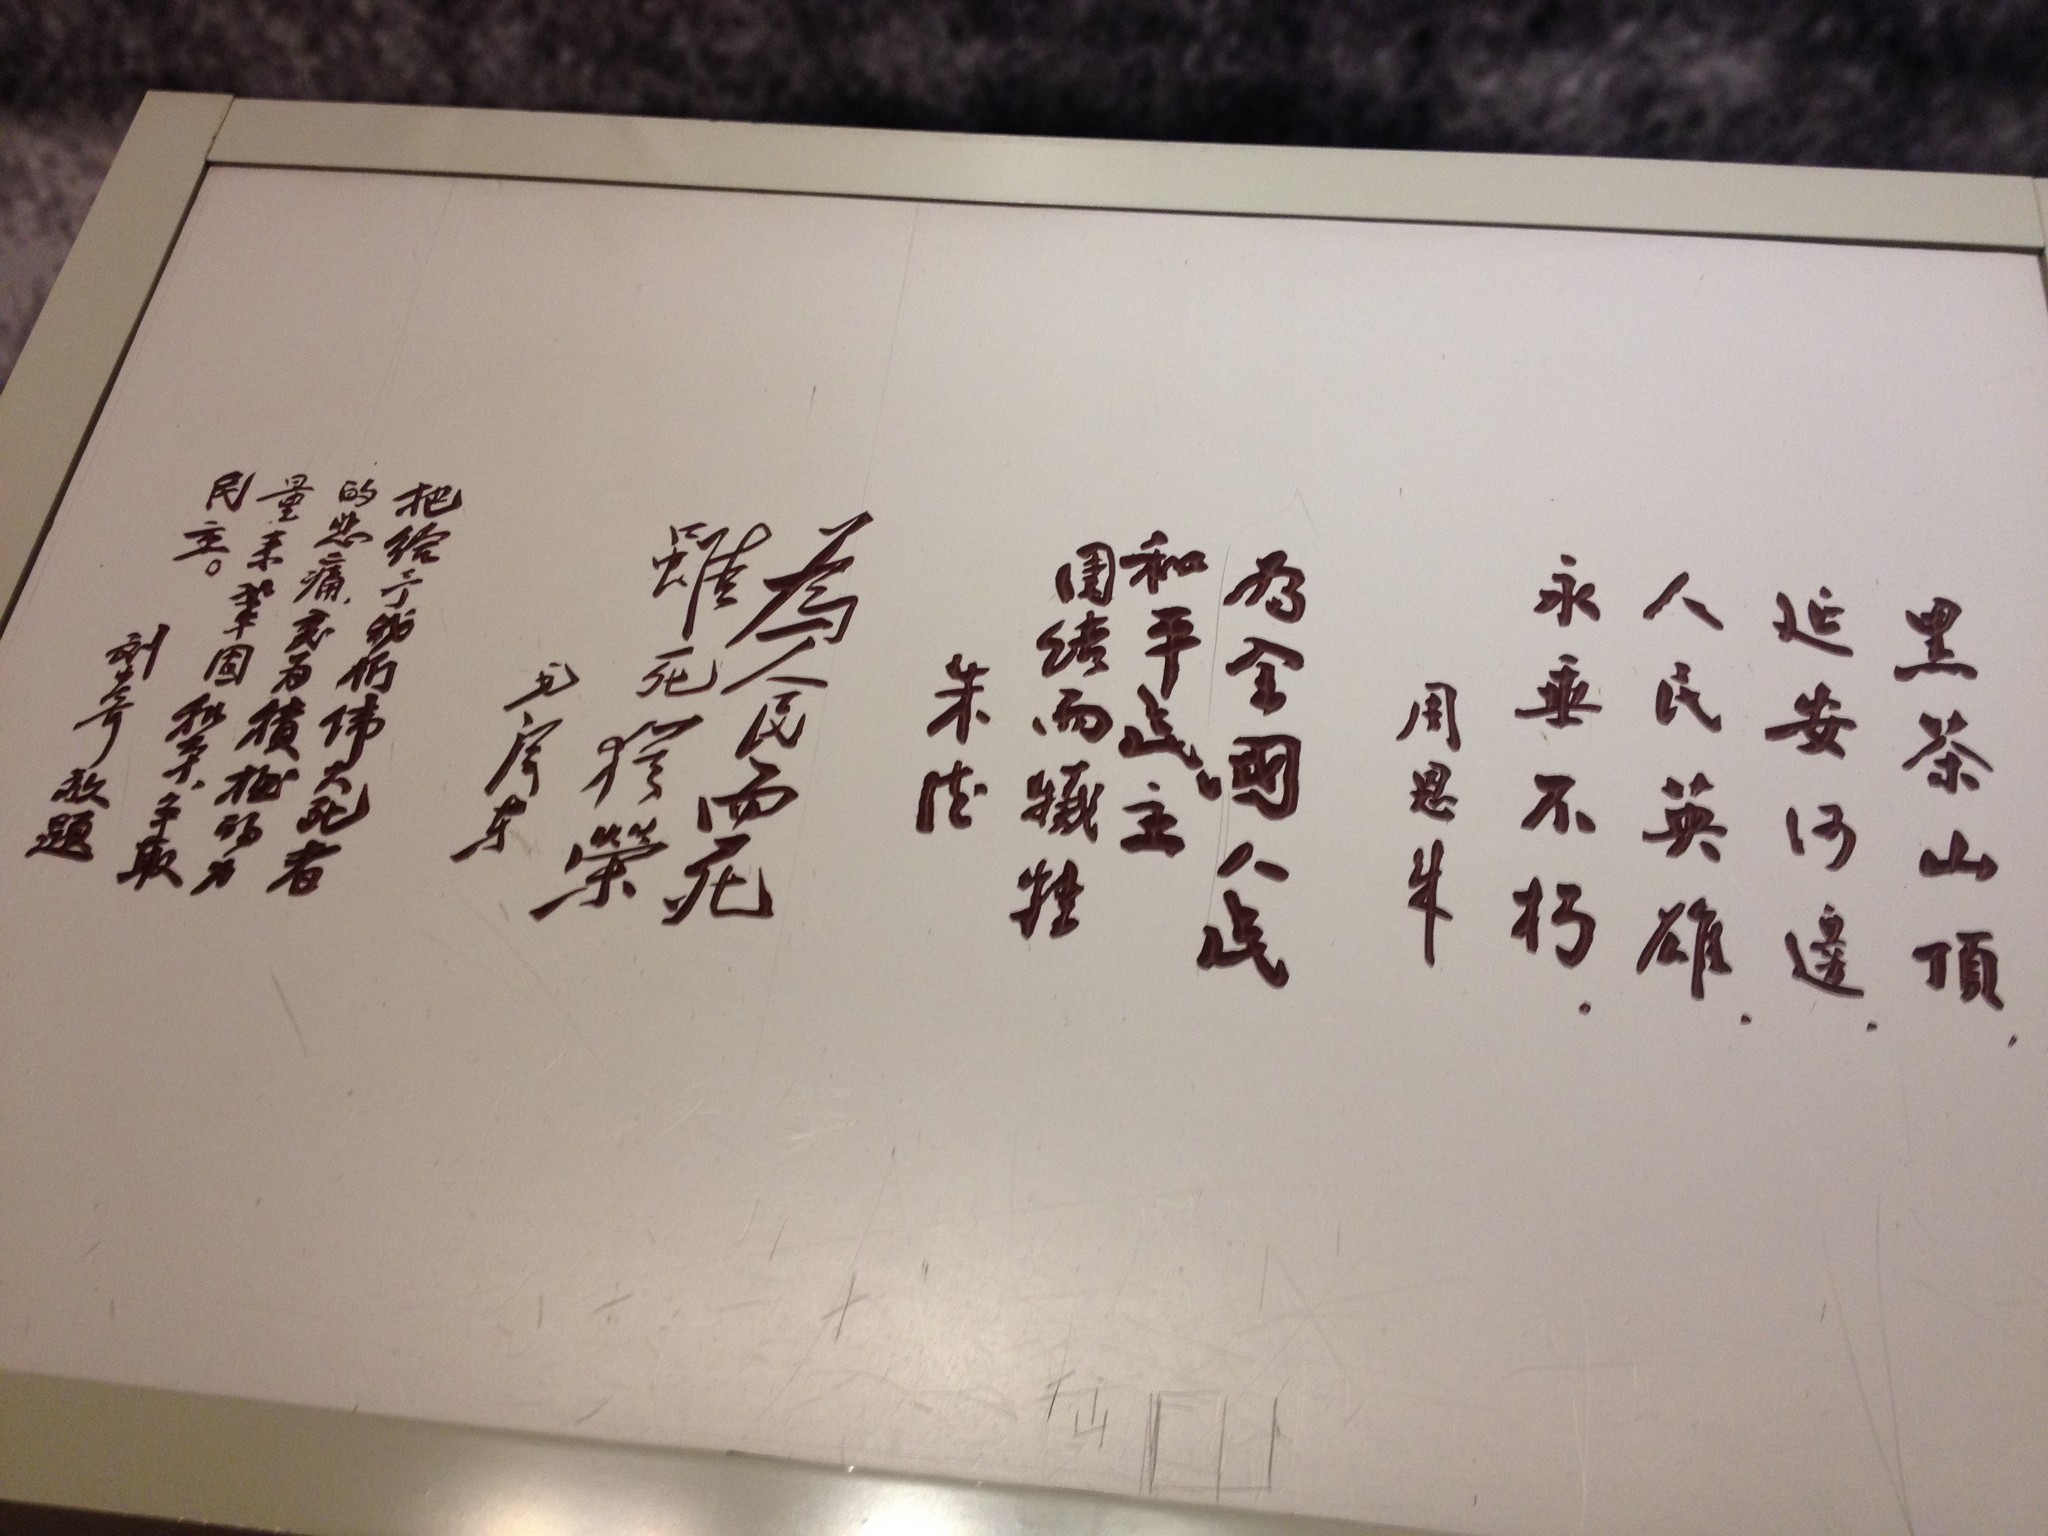 黑茶山頂.
延安河邊.
人民英雄.
永垂不朽.
周恩来
为全國人民
和平民主
團结而犧牲
朱德
為人民而死
雖死猶榮
毛泽东
把给予我们伟大死者
的悲痛,变为積極的力
量来鞏固和平、争取
民主。
刘少奇敬題